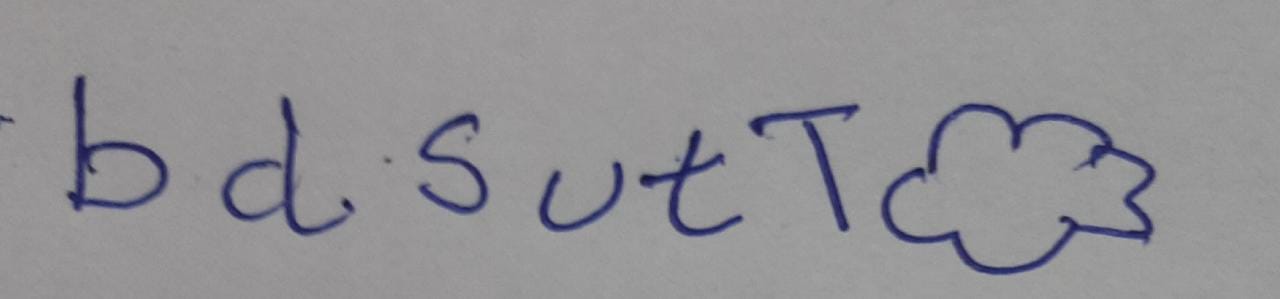 b d. S u t T